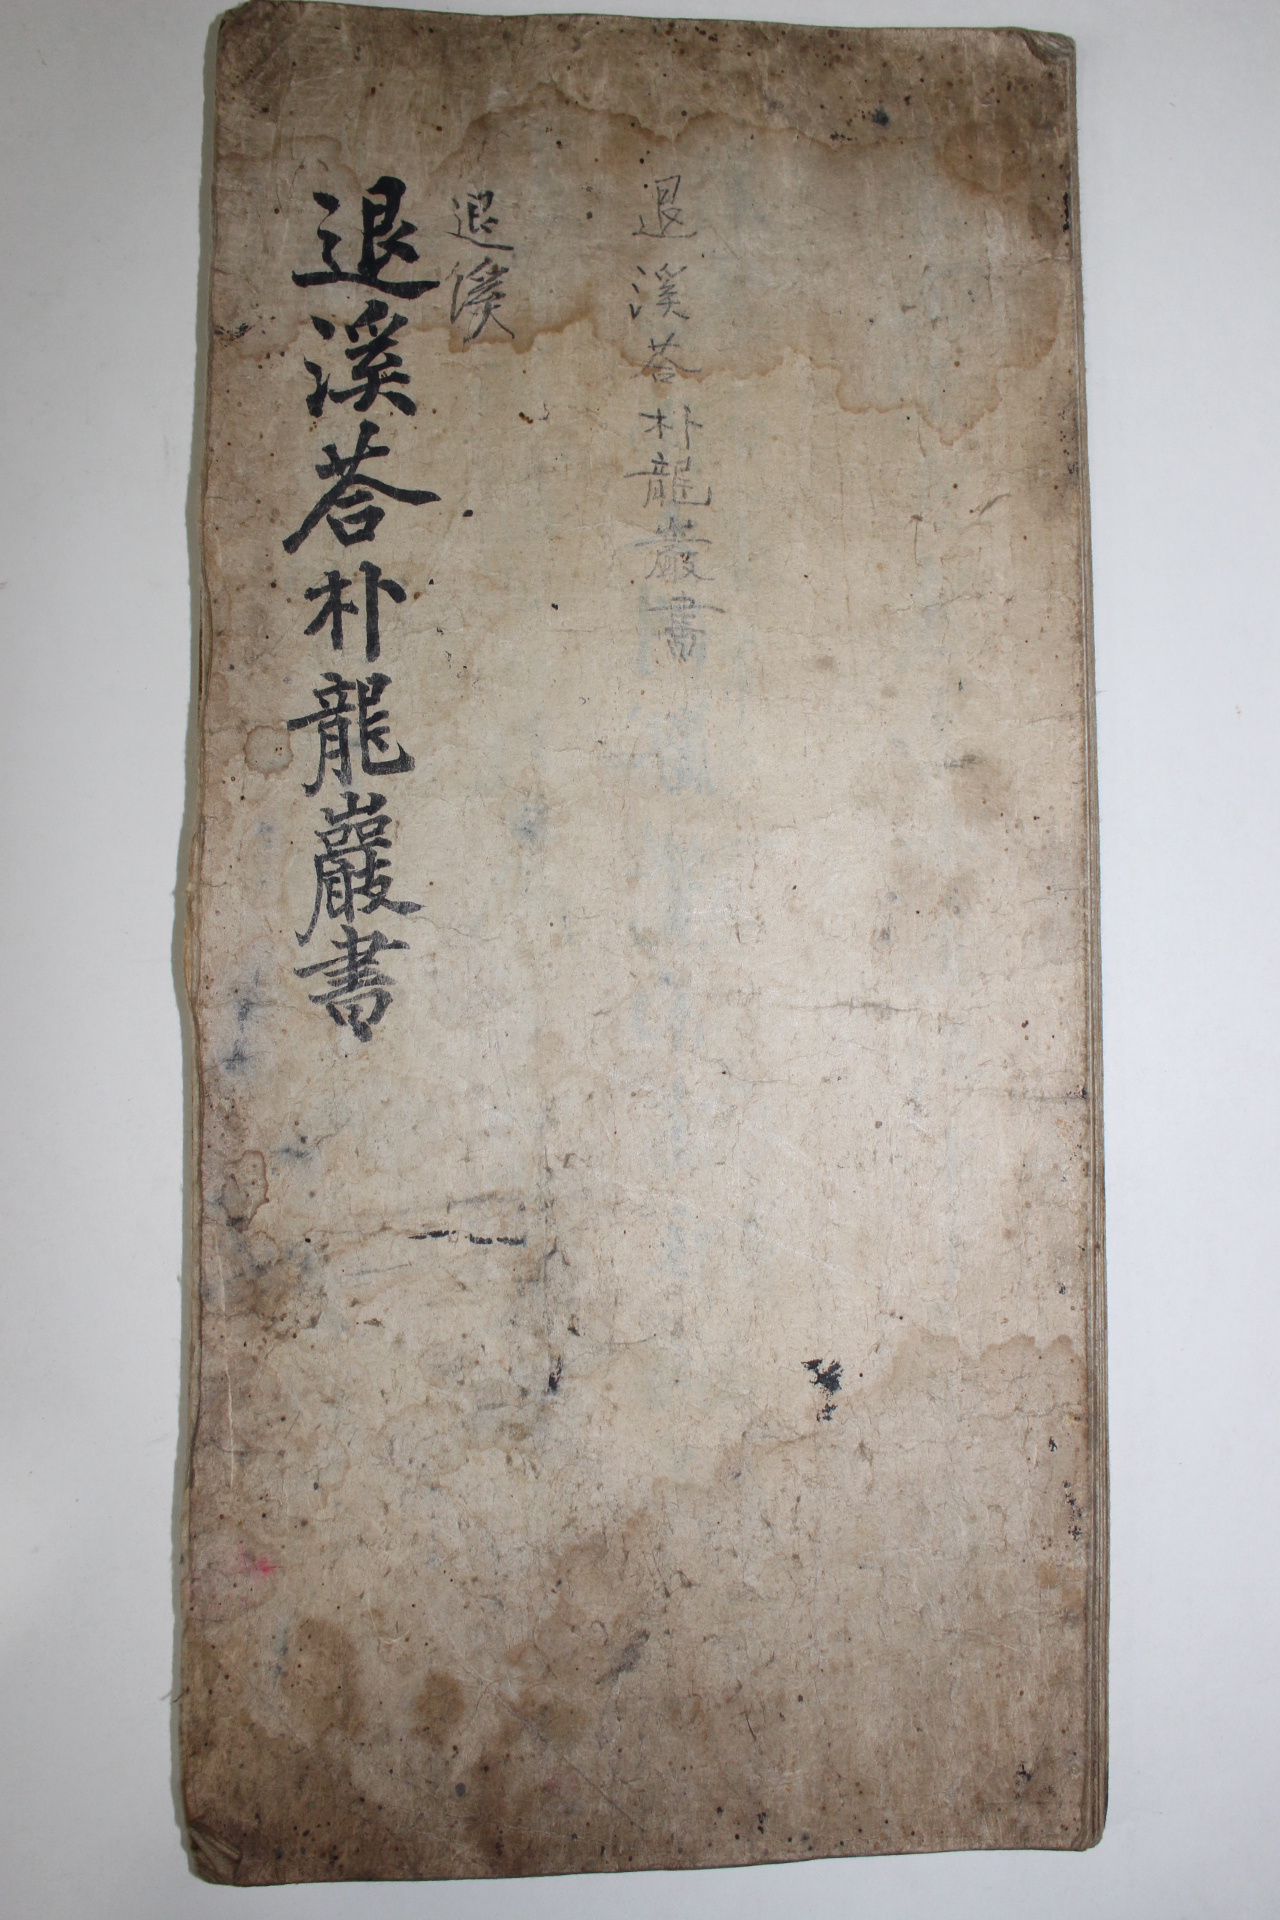 退溪荅朴龍巖書
退溪
退溪荅朴龍巖書